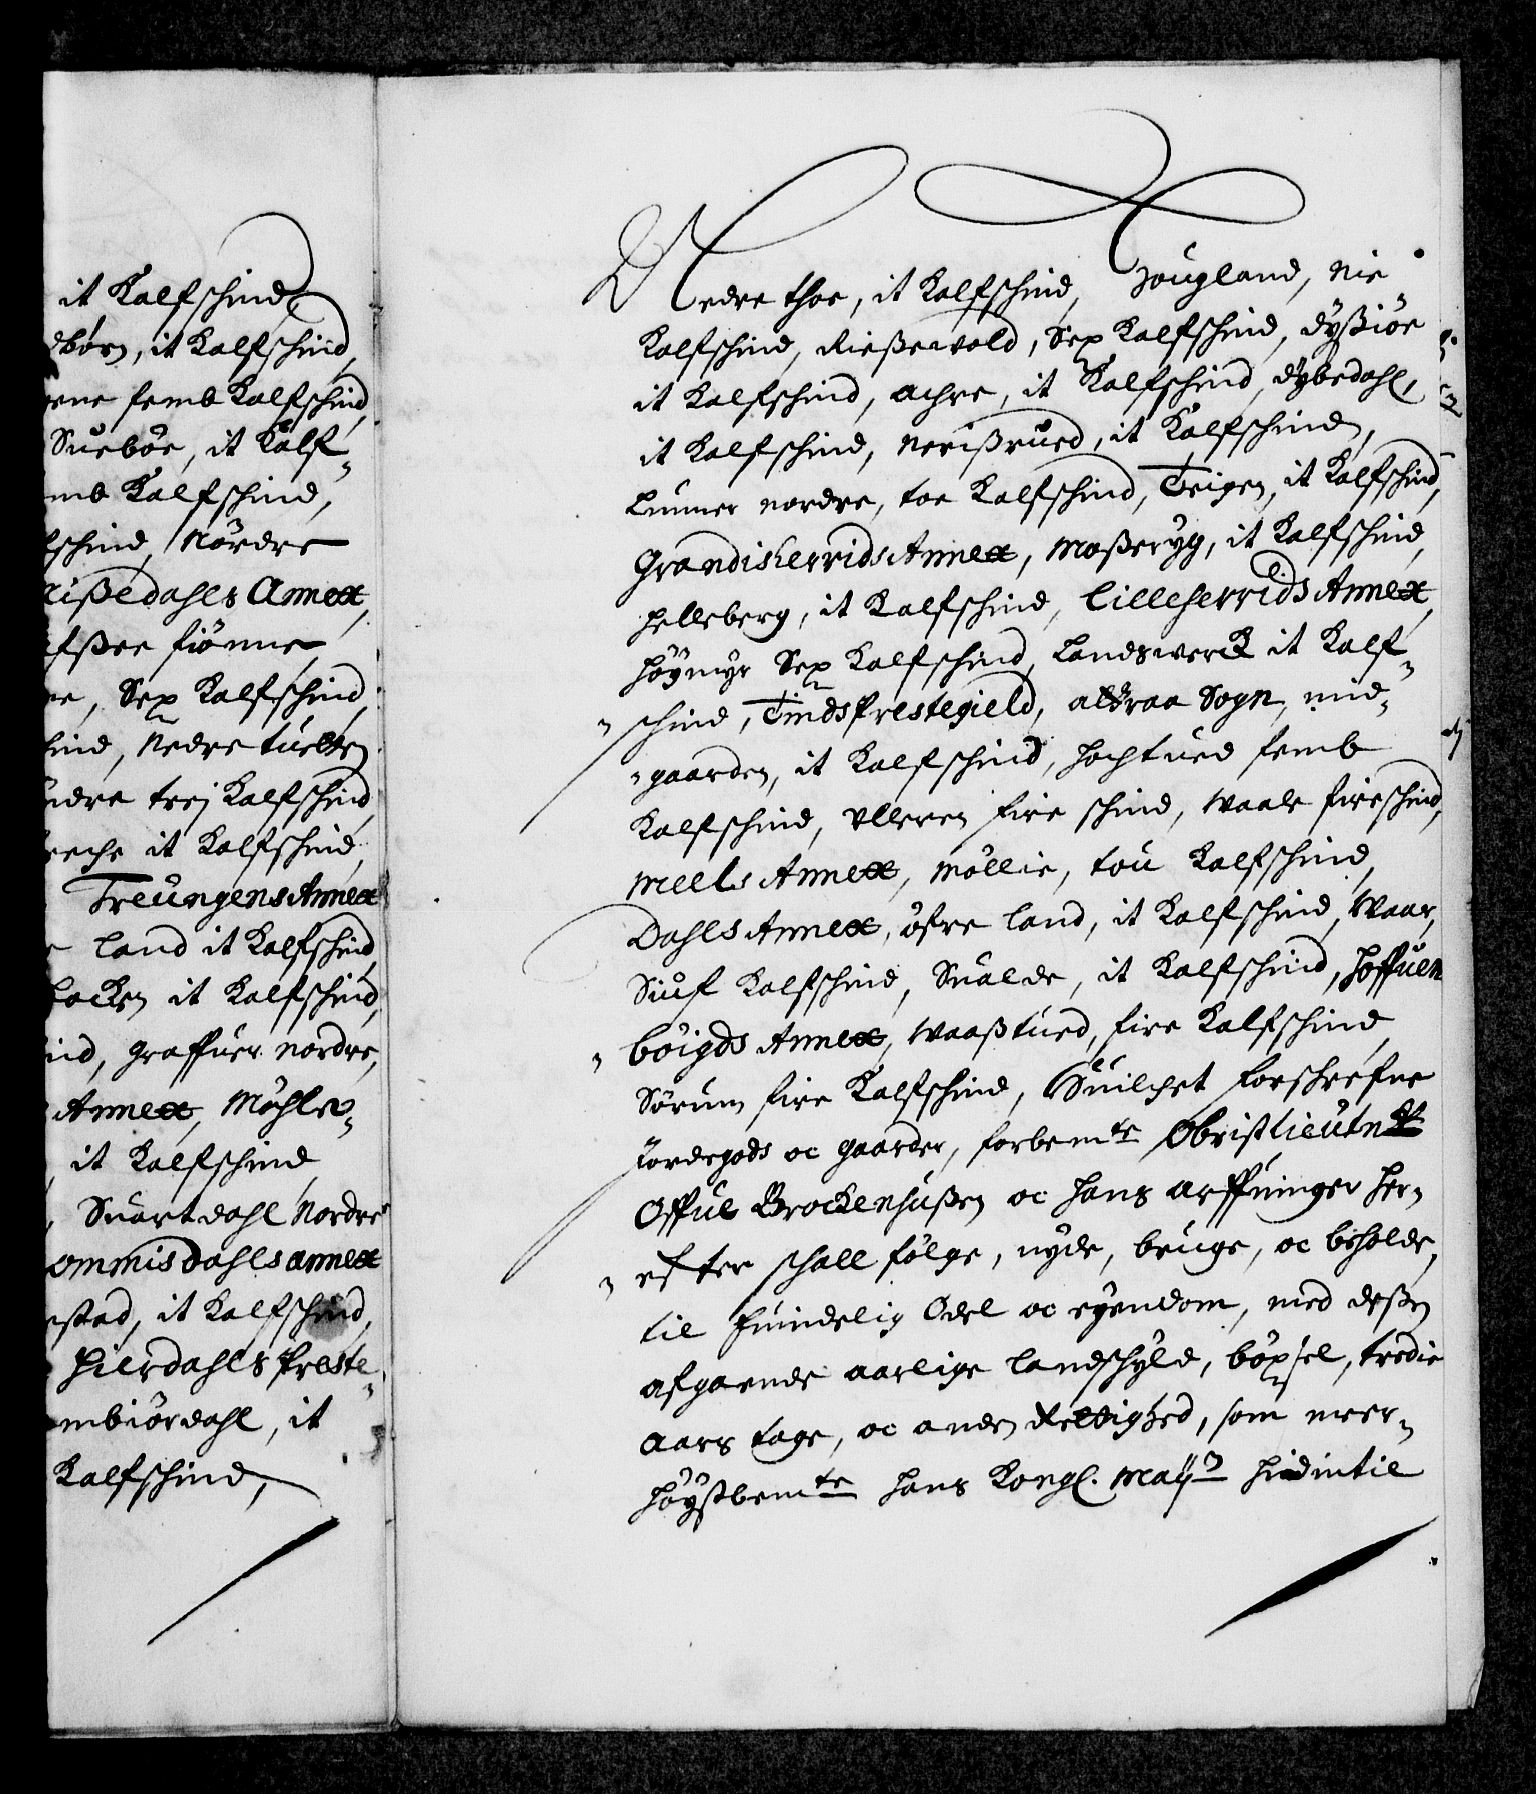 it Kalfschind
dbørn, it Kalfschind,
ene femb Kalfschind,
Sueböe, it Kalf-
mb Kalfschind,
schind, Nördre
ißedahls Annex,
fiönne
e, Sex Kalfschind,
ind, Nedre tuetten
ndre trej Kalfschind
it Kalfschind,
Treungens Annex
land it Kalfschind,
backen it Kalfschind,
ind, Graffuer nordre,
Annex, Möhle-
it Kalfschind,
Suartdahl Nordre
ommisdahls annex
stad, it Kalfschind,
Hierdahls Preste-
mbiördahl, it
Kalfschind,
Nedre thoe, it Kalfschind, Hougland, nie
Kalfschind, Rießewold, Sex Kalfschind, Dyßiöe
it Kalfschind, Achre, it Kalfschind, Dybedahl,
it Kalfschind, Nerißrued, it Kalfschind,
Lunner nordre, toe Kalfschind, Teigen, it Kalfschind,
Grandisherrids Annex, Moßeryg, it Kalfschind,
Helleberg, it Kalfschind, Lilleherrids Annex,
Höymyr Sex Kalfschind, Landswerck it Kalf-
schind, Tinds Prestegield, Attraa Sogn, mid-
gaarden, it Kalfschind, Hochtued femb
Kalfschind, Ulleren fire schind, Waale fire schind,
Meels Annex, Möllie, tou Kalfschind,
Dahls Annex, öfre land, it Kalfschind, Waar,
Siuf Kalfschind, Sualde, it Kalfschind, Hoffuen
böigds Annex, Waaßtued, fire Kalfschind,
Sörum fire Kalfschind, Huilchet forschrefne
Jordegods oc gaarder, forbemte Obristlieutnt
Offue Brockenhußen oc hans Arffuinger her-
efter schall fölge, nyde, bruge, oc beholde,
til Euindelig Odel oc eyendom, med deßen
afgaaende aarlige landschyld, böxsel, tredie
Aars tage, oc anden Rettighed, som meer-
höystbemte hans Kongl. Mayt hidintil